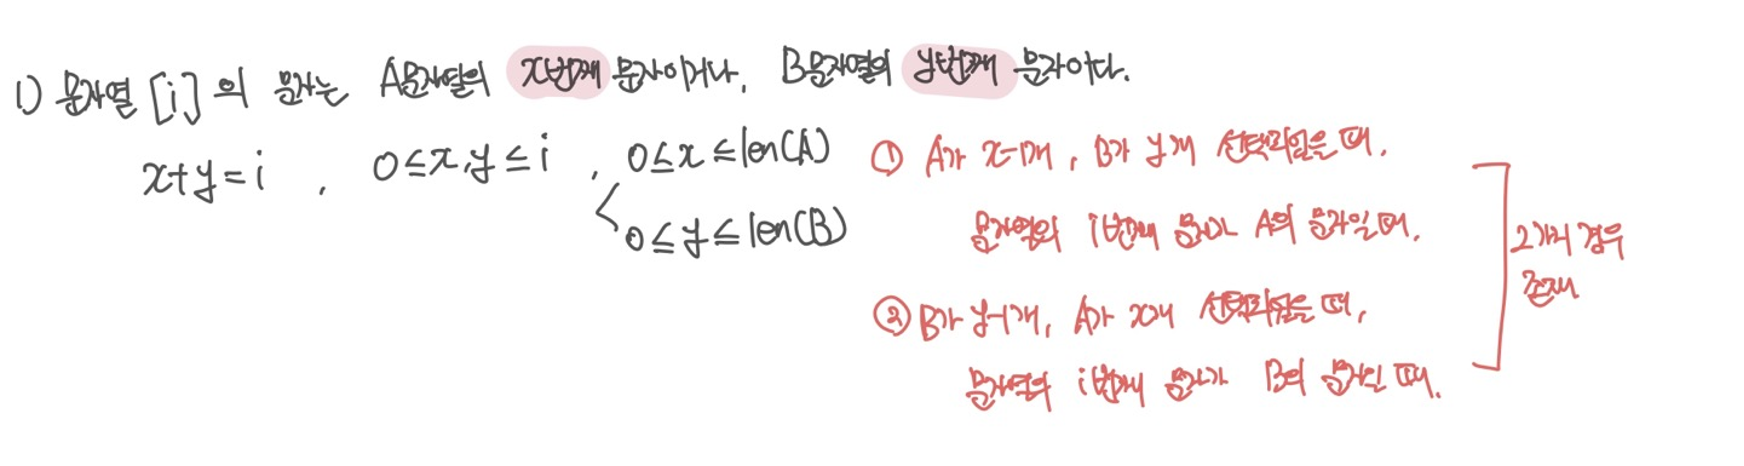 1) 문자열 [i] 의 문자는 A문자열의 x번째 문자이거나, B문자열의 y번째 문자이다.
x+y=i , 0≤x,y≤i , 0≤x≤len(A)
0≤y≤len(B)
① A가 x-1개, B가 y개 선택되었을 때,
문자열의 i번째 문자가 A의 문자일 때.
② B가 y-1개, A가 x개 선택되었을 때,
문자열의 i번째 문자가 B의 문자인 때.
2가지 경우
존재